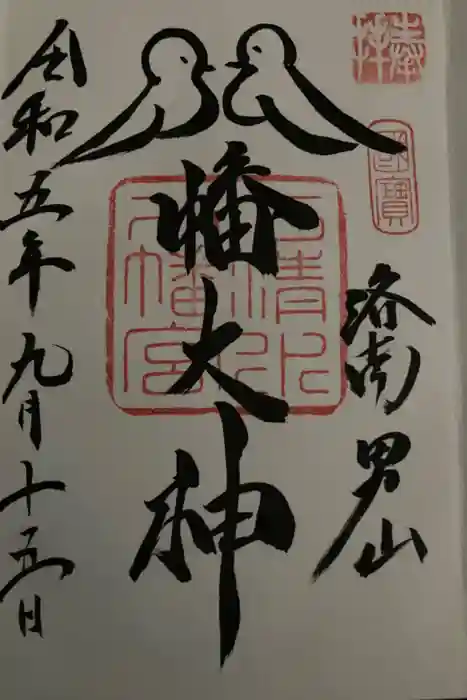 奉拝
國寶
洛南男山
八幡大神
石清水八幡宮
令和五年九月十五日